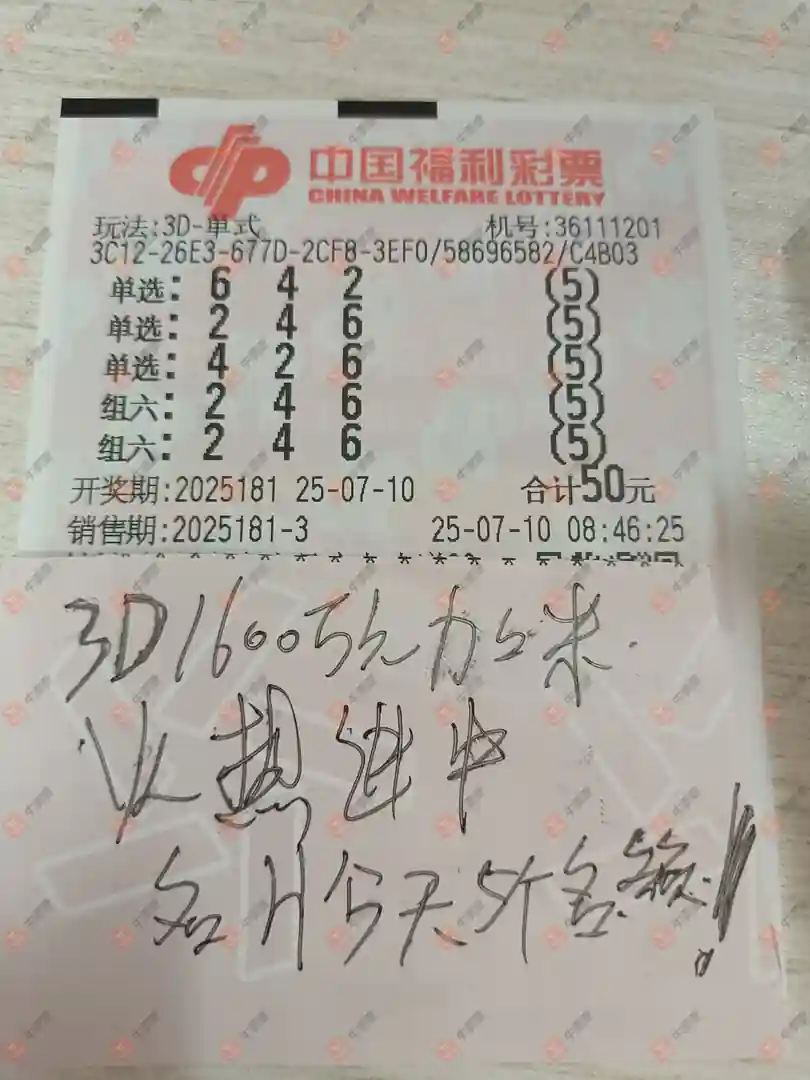 中国福利彩票
CHINA WELFARE LOTTERY
玩法:3D-单式 机号:36111201
3C12-26E3-677D-2CF8-3EF0/58696582/C4B03
单选: 6 4 2 (5)
单选: 2 4 6 (5)
单选: 4 2 6 (5)
组六: 2 4 6 (5)
组六: 2 4 6 (5)
开奖期:2025181 25-07-10 合计50元
销售期:2025181-3 25-07-10 08:46:25
3D1600万元加上来.
火热进中
名片今天5个名额!